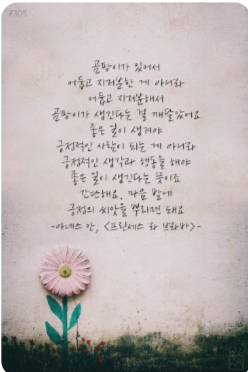 #305
곰팡이가 있어서
어둡고 지저분한 게 아니라
어둡고 지저분해서
곰팡이가 생긴다는 걸 깨달았어요
좋은 일이 생겨야
긍정적인 사람이 되는 게 아니라
긍정적인 생각과 행동을 해야
좋은 일이 생긴다는 뜻이죠
간단해요, 마음 밭에
긍정의 씨앗을 뿌리면 돼요
-아네스 안, <프린세스 라 브라바>-